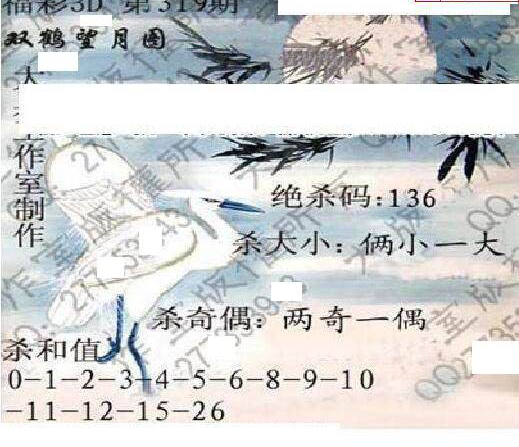 福彩3D 第319期
双鹤望月图
作室制作
绝杀码:136
杀大小: 俩小一大
杀奇偶: 两奇一偶
杀和值
0-1-2-3-4-5-6-8-9-10
-11-12-15-26